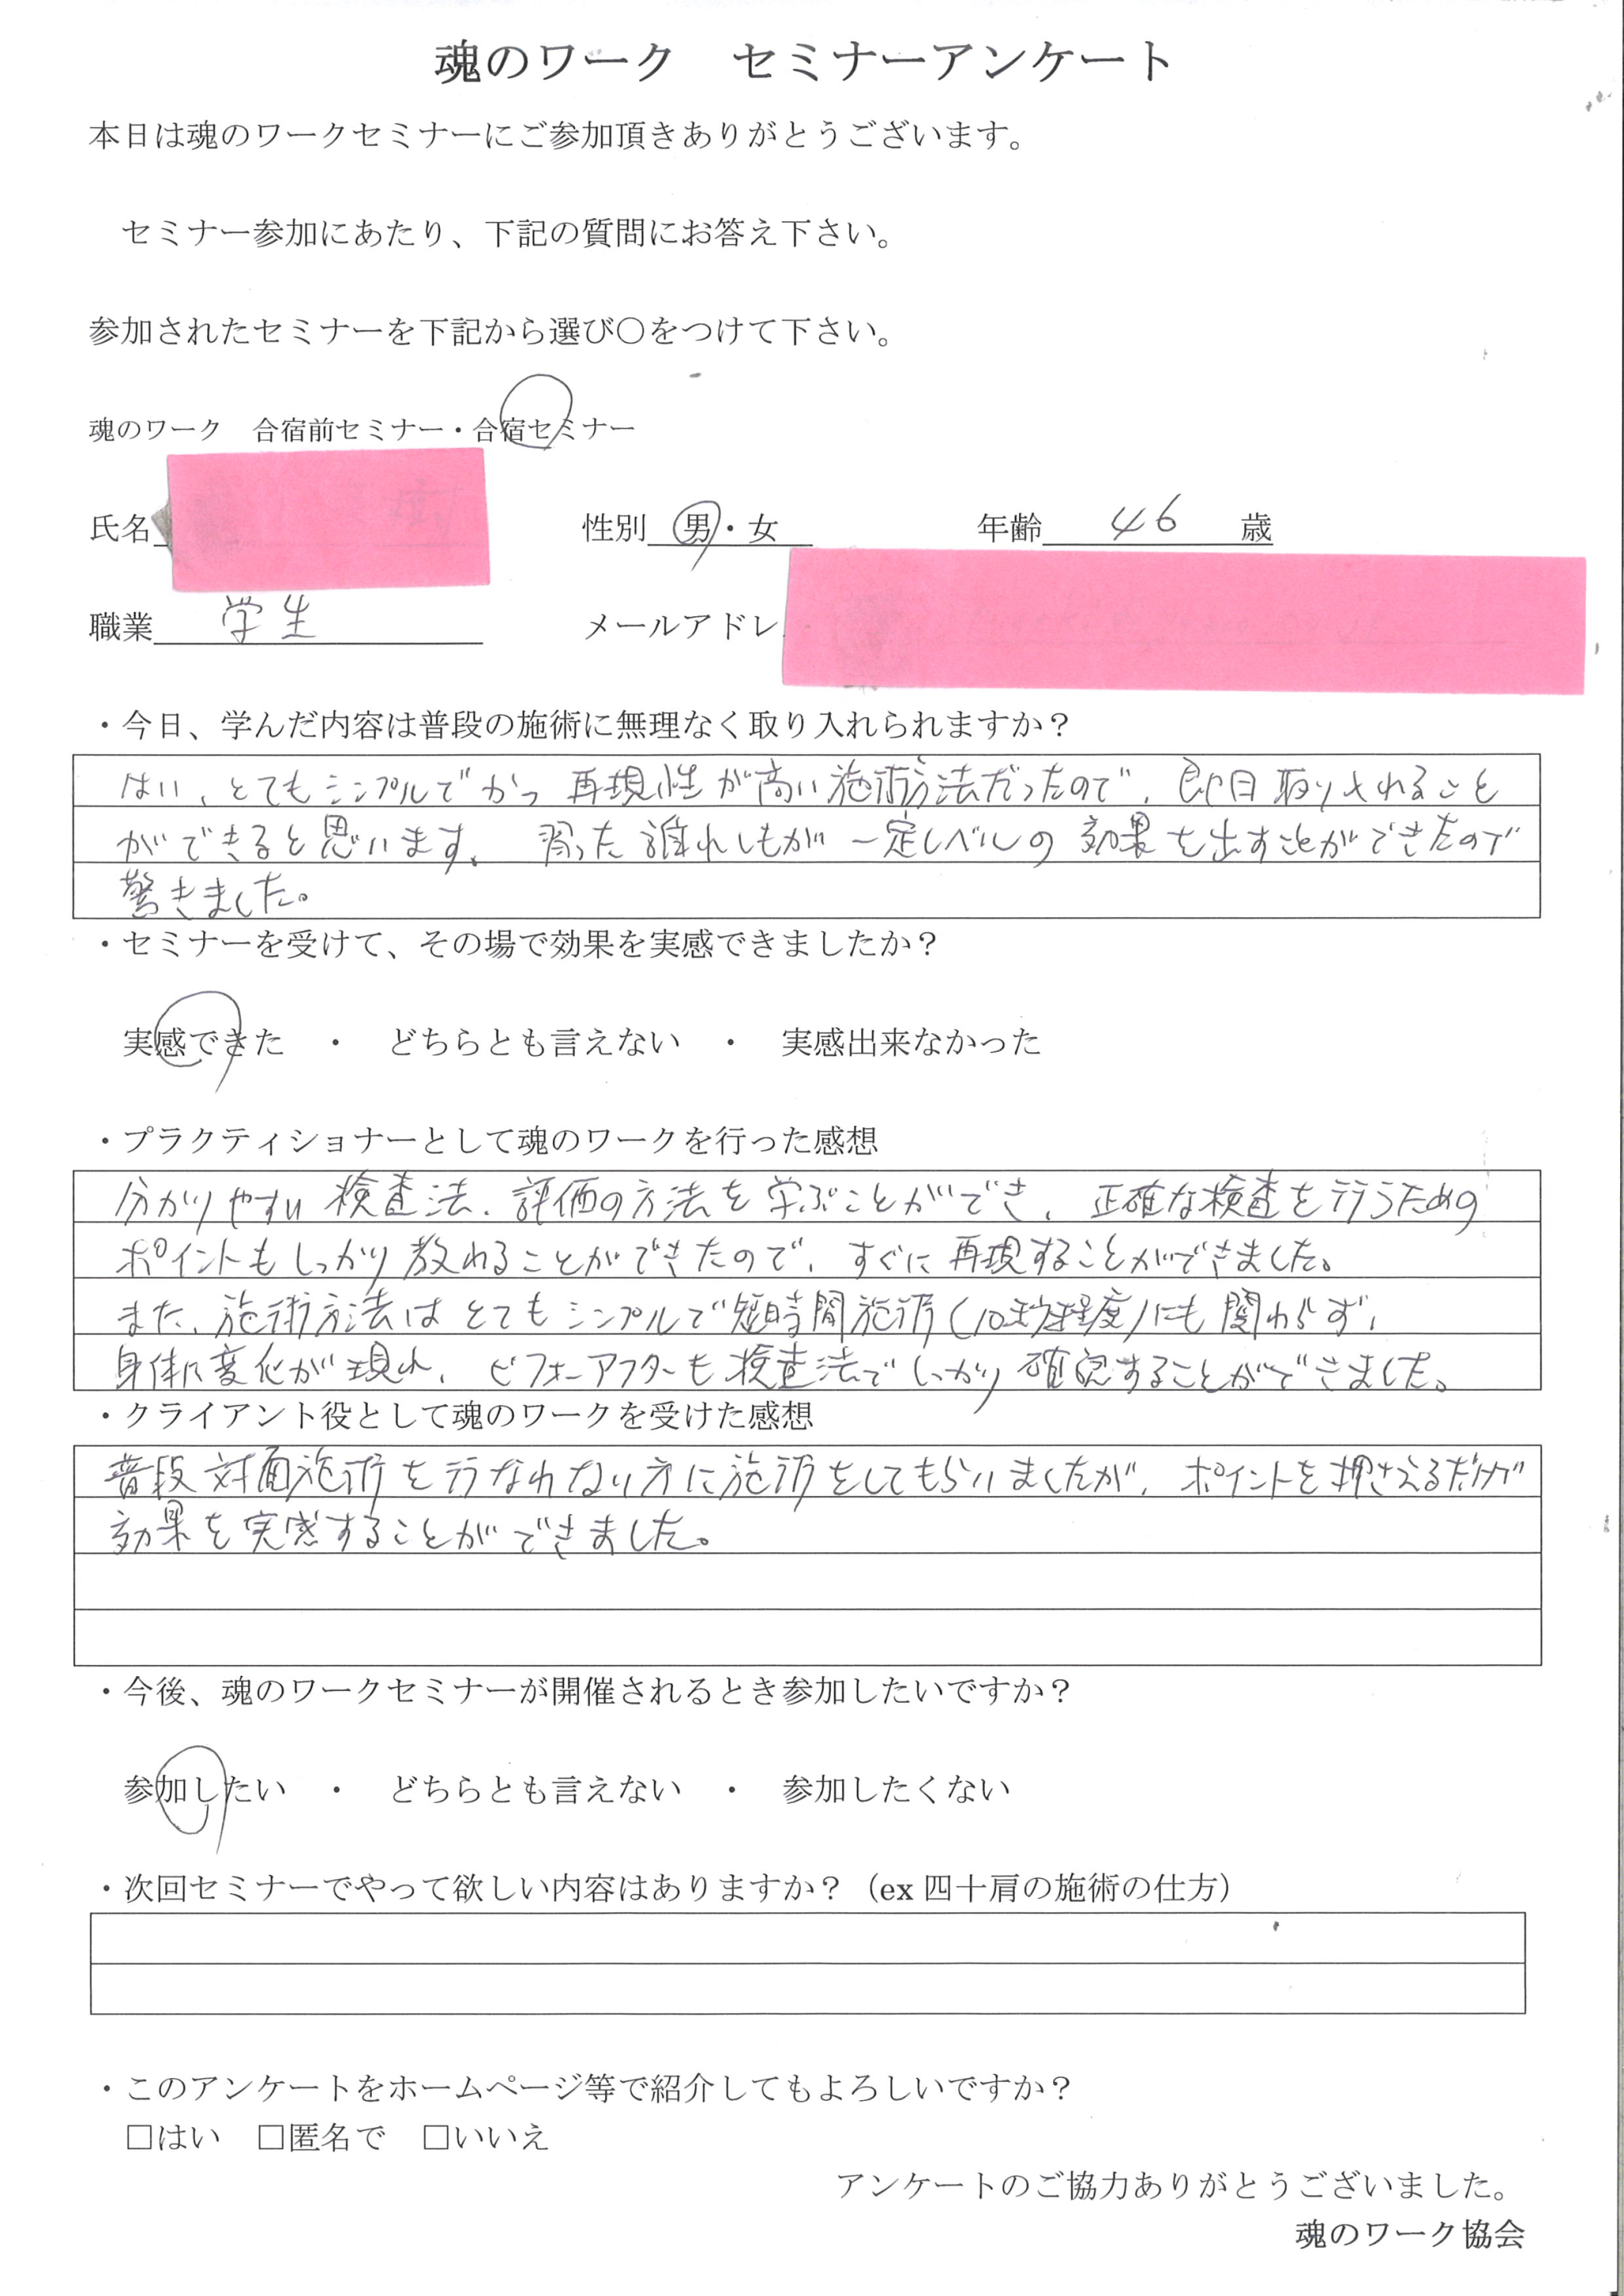 魂のワーク　セミナーアンケート
本日は魂のワークセミナーにご参加頂きありがとうございます。
セミナー参加にあたり、下記の質問にお答え下さい。
参加されたセミナーを下記から選び〇をつけて下さい。
魂のワーク　合宿前セミナー・合宿セミナー
氏名　性別　男・女　年齢　46　歳
職業　学生　メールアドレ
・今日、学んだ内容は普段の施術に無理なく取り入れられますか？
はい、とてもシンプルでかつ再現性が高い施術方法だったので、即日取り入れること
ができると思います。習った誰れしもが一定レベルの効果を出すことができたので
驚きました。
・セミナーを受けて、その場で効果を実感できましたか？
実感できた　・　どちらとも言えない　・　実感出来なかった
・プラクティショナーとして魂のワークを行った感想
分かりやすい検査法、評価の方法を学ぶことができ、正確な検査を行うための
ポイントもしっかり教れることができたので、すぐに再現することができました。
また、施術方法はとてもシンプルで短時間施術(10秒程度)にも関わらず、
身体に変化が現れ、ビフォーアフターも検査法でしっかり確認することができました。
・クライアント役として魂のワークを受けた感想
普段対面施術を行なれない方に施術をしてもらいましたが、ポイントを押さえるだけで
効果を実感することができました。
・今後、魂のワークセミナーが開催されるとき参加したいですか？
参加したい　・　どちらとも言えない　・　参加したくない
・次回セミナーでやって欲しい内容はありますか？（ex 四十肩の施術の仕方）
・このアンケートをホームページ等で紹介してもよろしいですか？
□はい　□匿名で　□いいえ
アンケートのご協力ありがとうございました。
魂のワーク協会